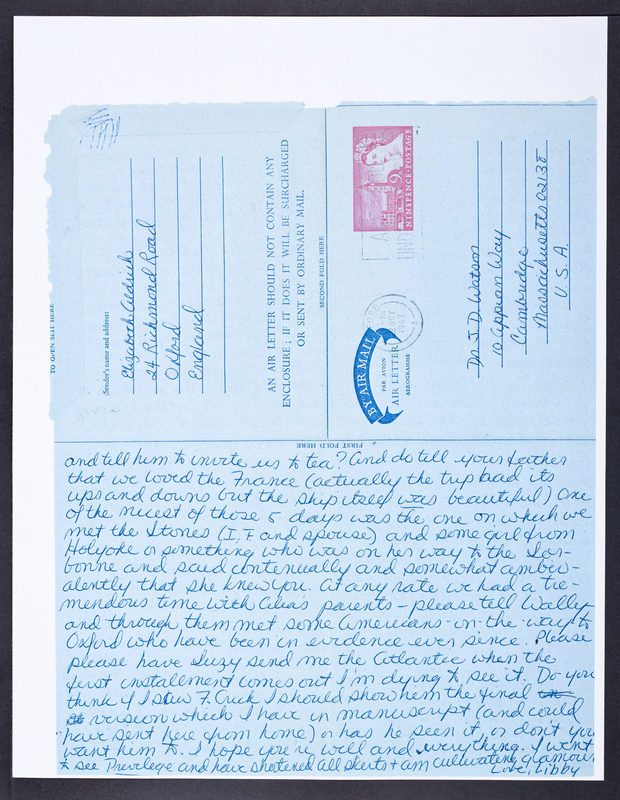 TO OPEN SLIT HERE
Sender's name and address:
Elizabeth Aldrich
24 Richmond Road
Oxford
England
AN AIR LETTER SHOULD NOT CONTAIN ANY
ENCLOSURE; IF IT DOES IT WILL BE SURCHARGED
OR SENT BY ORDINARY MAIL.
SECOND FOLD HERE
9D
NINEPENCE·POSTAGE
OCT
1967
BY AIR MAIL
PAR AVION
AIR LETTER
AEROGRAMME
Dr J. D. Watson
10 Appian Way
Cambridge
Massachusetts 02138
U.S.A.
FIRST FOLD HERE
and tell him to invite us to tea? And do tell your father
that we loved the France (actually the trip had its
ups and downs but the ship itself was beautiful) One
of the nicest of those 5 days was the one on which we
met the Stones (I. F and spouse) and some girl from
Holyoke or something who was on her way to the Sor-
bonne and said continually and somewhat ambiv-
alently that she knew you. At any rate we had a tre-
mendous time with Celia's parents – please tell Wally
and through them met some Americans-on-the-way-to
Oxford who have been in evidence ever since. Please
please have Suzy send me the Atlantic when the
first installment comes out I'm dying to see it. Do you
think if I saw F. Crick I should show him the final
version which I have in manuscript (and could
have sent here from home) or has he seen it, or don't you
want him to. I hope you're well and everything. I went
to see Privilege and have shortened all skirts + am cultivating glamour
Love, Libby